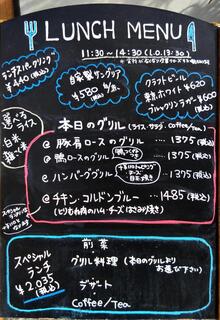 LUNCH MENU
11:30~14:30 (L.O.13:30)
ランチスパークリング
¥440(税込)
自家製サングリア
¥580
クラフトビール
東京ホワイト ¥620
ブルックリンラガー ¥600
(税込)
選べる
ライス
白米
雑穀米
本日のグリル (ライス・サラダ・Coffee/tea)
@ 豚肩ロースのグリル … 1375(税込)
@ 鴨ロースのグリル … 1375(税込)
@ ハンバーググリル … 1375(税込)
@ チキン・コルドンブルー … 1485(税込)
(とりむね肉のハム・チーズはさみ揚げ)
スペシャル
ランチ
¥2035
(税込)
前菜
グリル料理 (本日のグリルより
お選び下さい)
デザート
Coffee/Tea